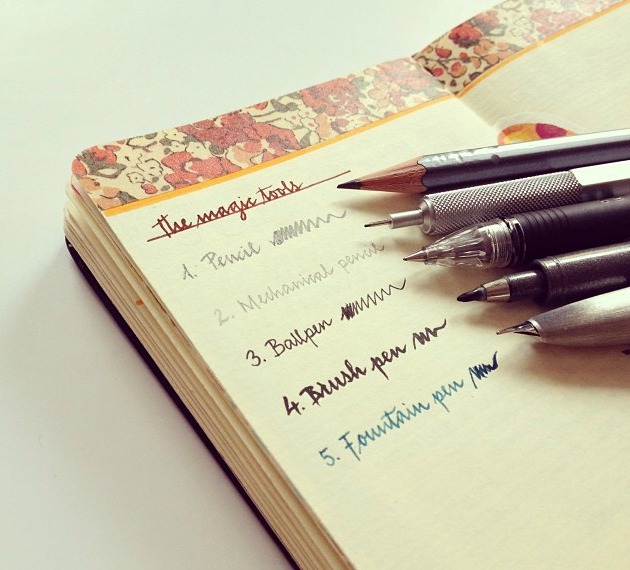 the magic tools
1. Pencil
2. Mechanical pencil
3. Ballpen
4. Brush pen
5. Fountain pen